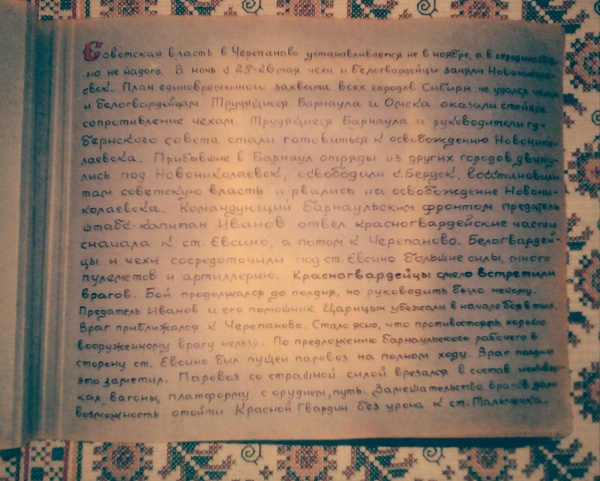 Советская власть в Черепаново устанавливается не в ноябре, а в середине
но не надолго. В ночь с 25-26 мая чехи и белогвардейцы заняли Новоникола
евск. План единовременного захвата всех городов Сибири не удался чехам
и белогвардейцам. Трудящиеся Барнаула и Омска оказали стойкое
сопротивление чехам. Трудящиеся Барнаула и руководители гу-
бернского совета стали готовиться к освобождению Новонико-
лаевска. Прибывшие в Барнаул отряды из других городов двину-
лись под Новониколаевск, освободили с. Бердск, восстановили
там советскую власть и рвались на освобождение Новони-
колаевска. Командующий барнаульским фронтом предатель
штабс-капитан Иванов отвел красногвардейские части
сначала к ст. Евсино, а потом к Черепаново. Белогвардей-
цы и чехи сосредоточили под ст. Евсино большие силы, много
пулеметов и артиллерию. Красногвардейцы смело встретили
врагов. Бой продолжался до полдня, но руководить было некому.
Предатель Иванов и его помощник Царицын убежали в начале боя в тыл.
Враг приближался к Черепаново. Стало ясно, что противостоять хорошо
вооруженному врагу нельзя. По предложению барнаульского рабочего в
сторону ст. Евсино был пущен паровоз на полном ходу. Враг поздно
это заметил. Паровоз со страшной силой врезался в состав
кал вагоны, платформу с орудием, путь. Замешательство врагов дало
возможность отойти Красной Гвардии без урона к ст. Тальменка.